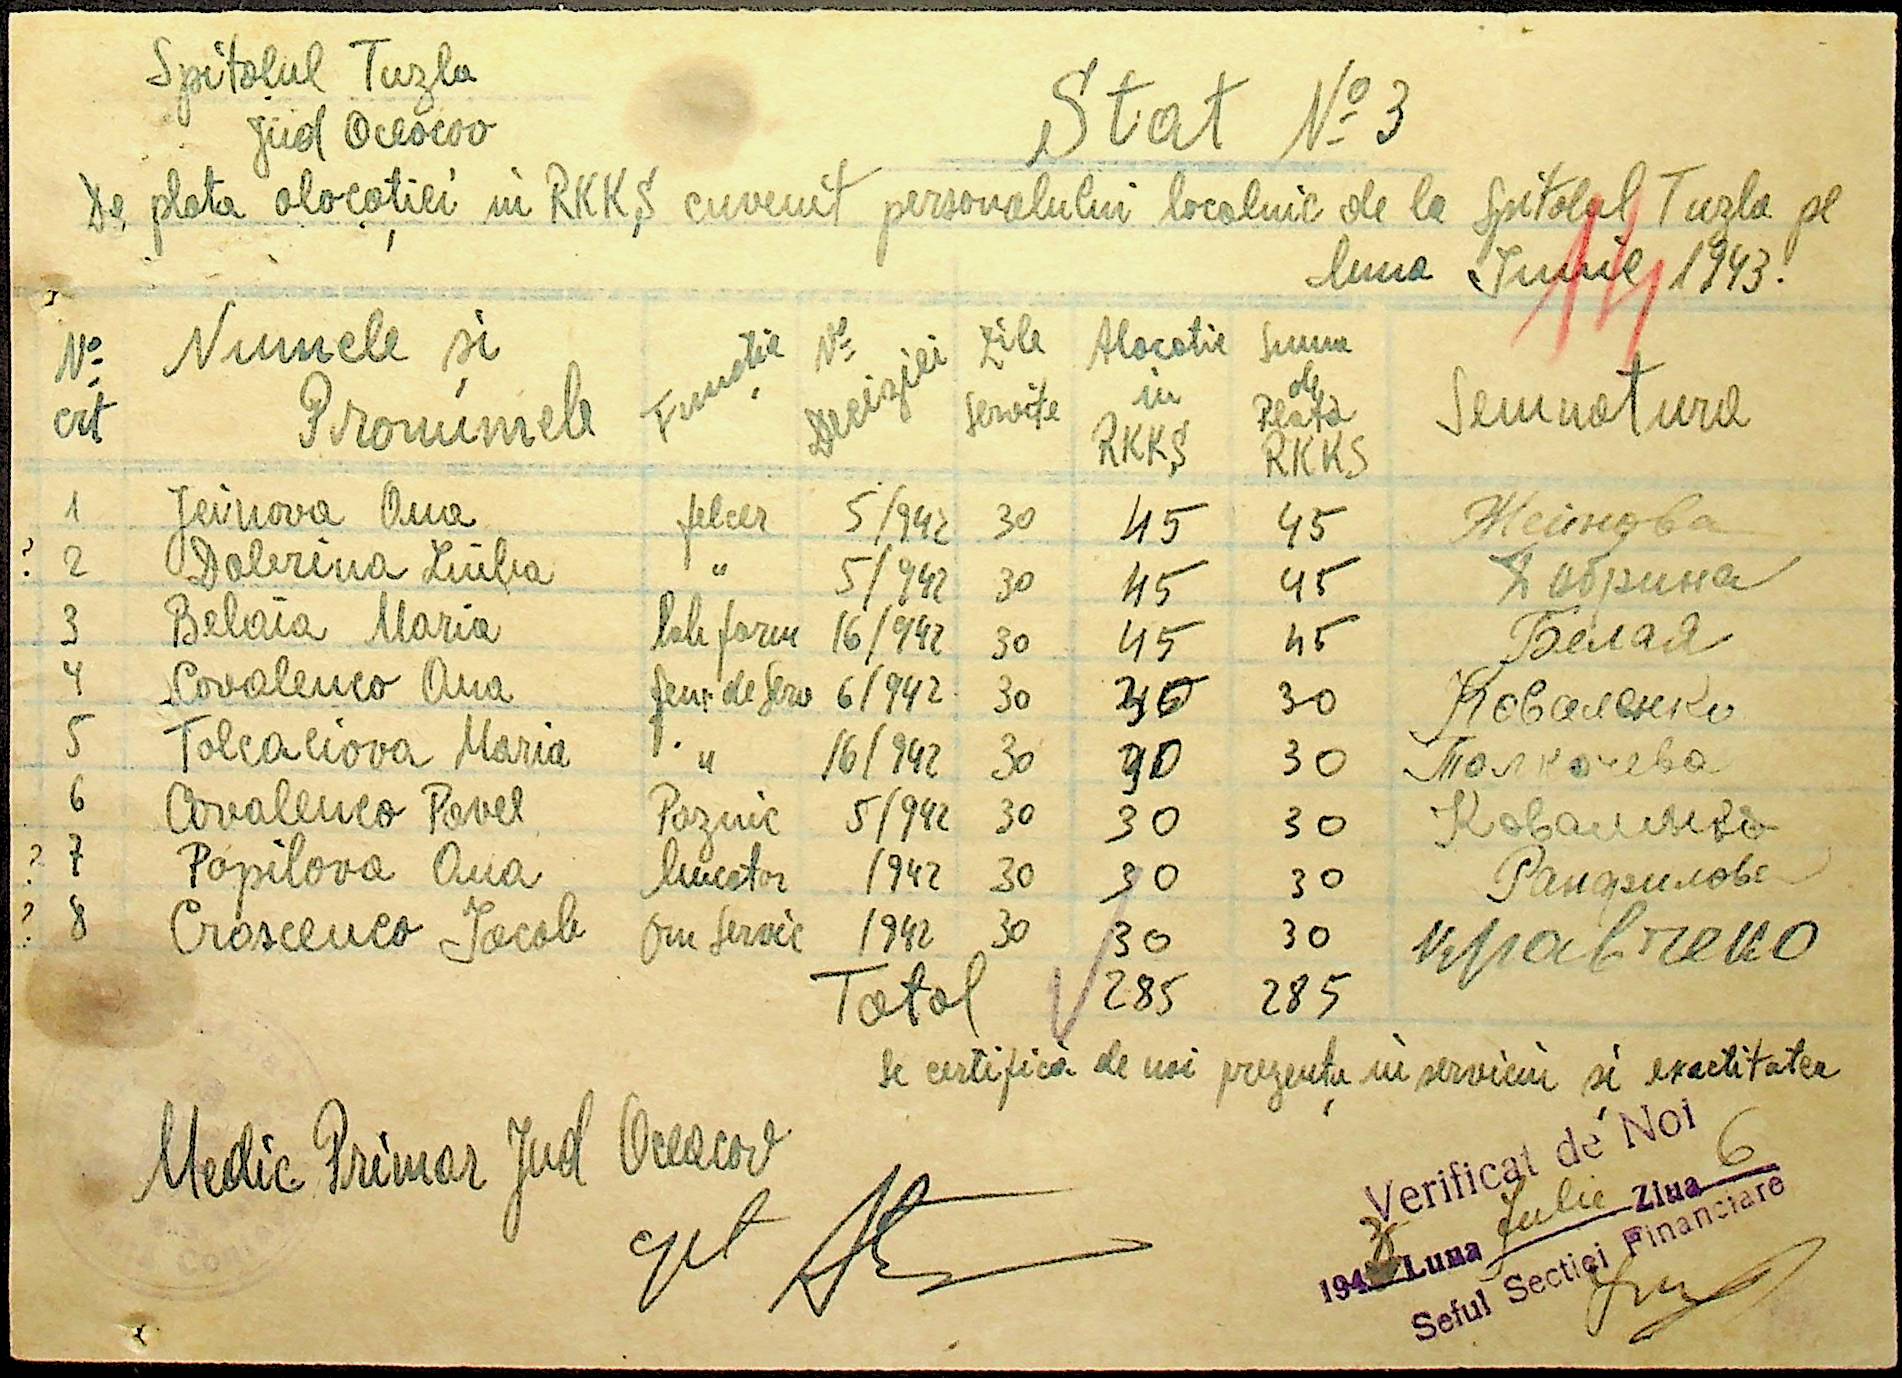 Spitalul Tuzla
Jud Oceacov
Stat Nº 3
De plata alocației in RKKȘ cuvenit personalului localnic de la Spitalul Tuzla pe
luna Iunie 1943.
14
Nº crt Numele și Pronumele Funcție Nº Deciziei Zile Servite Alocatie in RKKȘ Suma de Plată RKKS Semnatura
1 Jeinova Ana felcer 5/942 30 45 45 Жейнова
? 2 Dobrina Liuba " 5/942 30 45 45 Добрина
3 Belaia Maria lab farm 16/942 30 45 45 Белая
4 Covalenco Ana fem de serv 6/942 30 30 30 Коваленко
5 Tolcaciova Maria " 16/942 30 30 30 Толкачева
6 Covalenco Pavel Paznic 5/942 30 30 30 Коваленко
? 7 Popilova Ana bucator /942 30 30 30
? 8 Crascenco Iacob om Servic /942 30 30 30
Total 285 285
Se certifică de noi prezența in serviciu și exactitatea
Medic Primar Jud Oceacov
cpt
Verificat de Noi
1943 Luna Iulie Ziua 6
Seful Sectiei Financiare